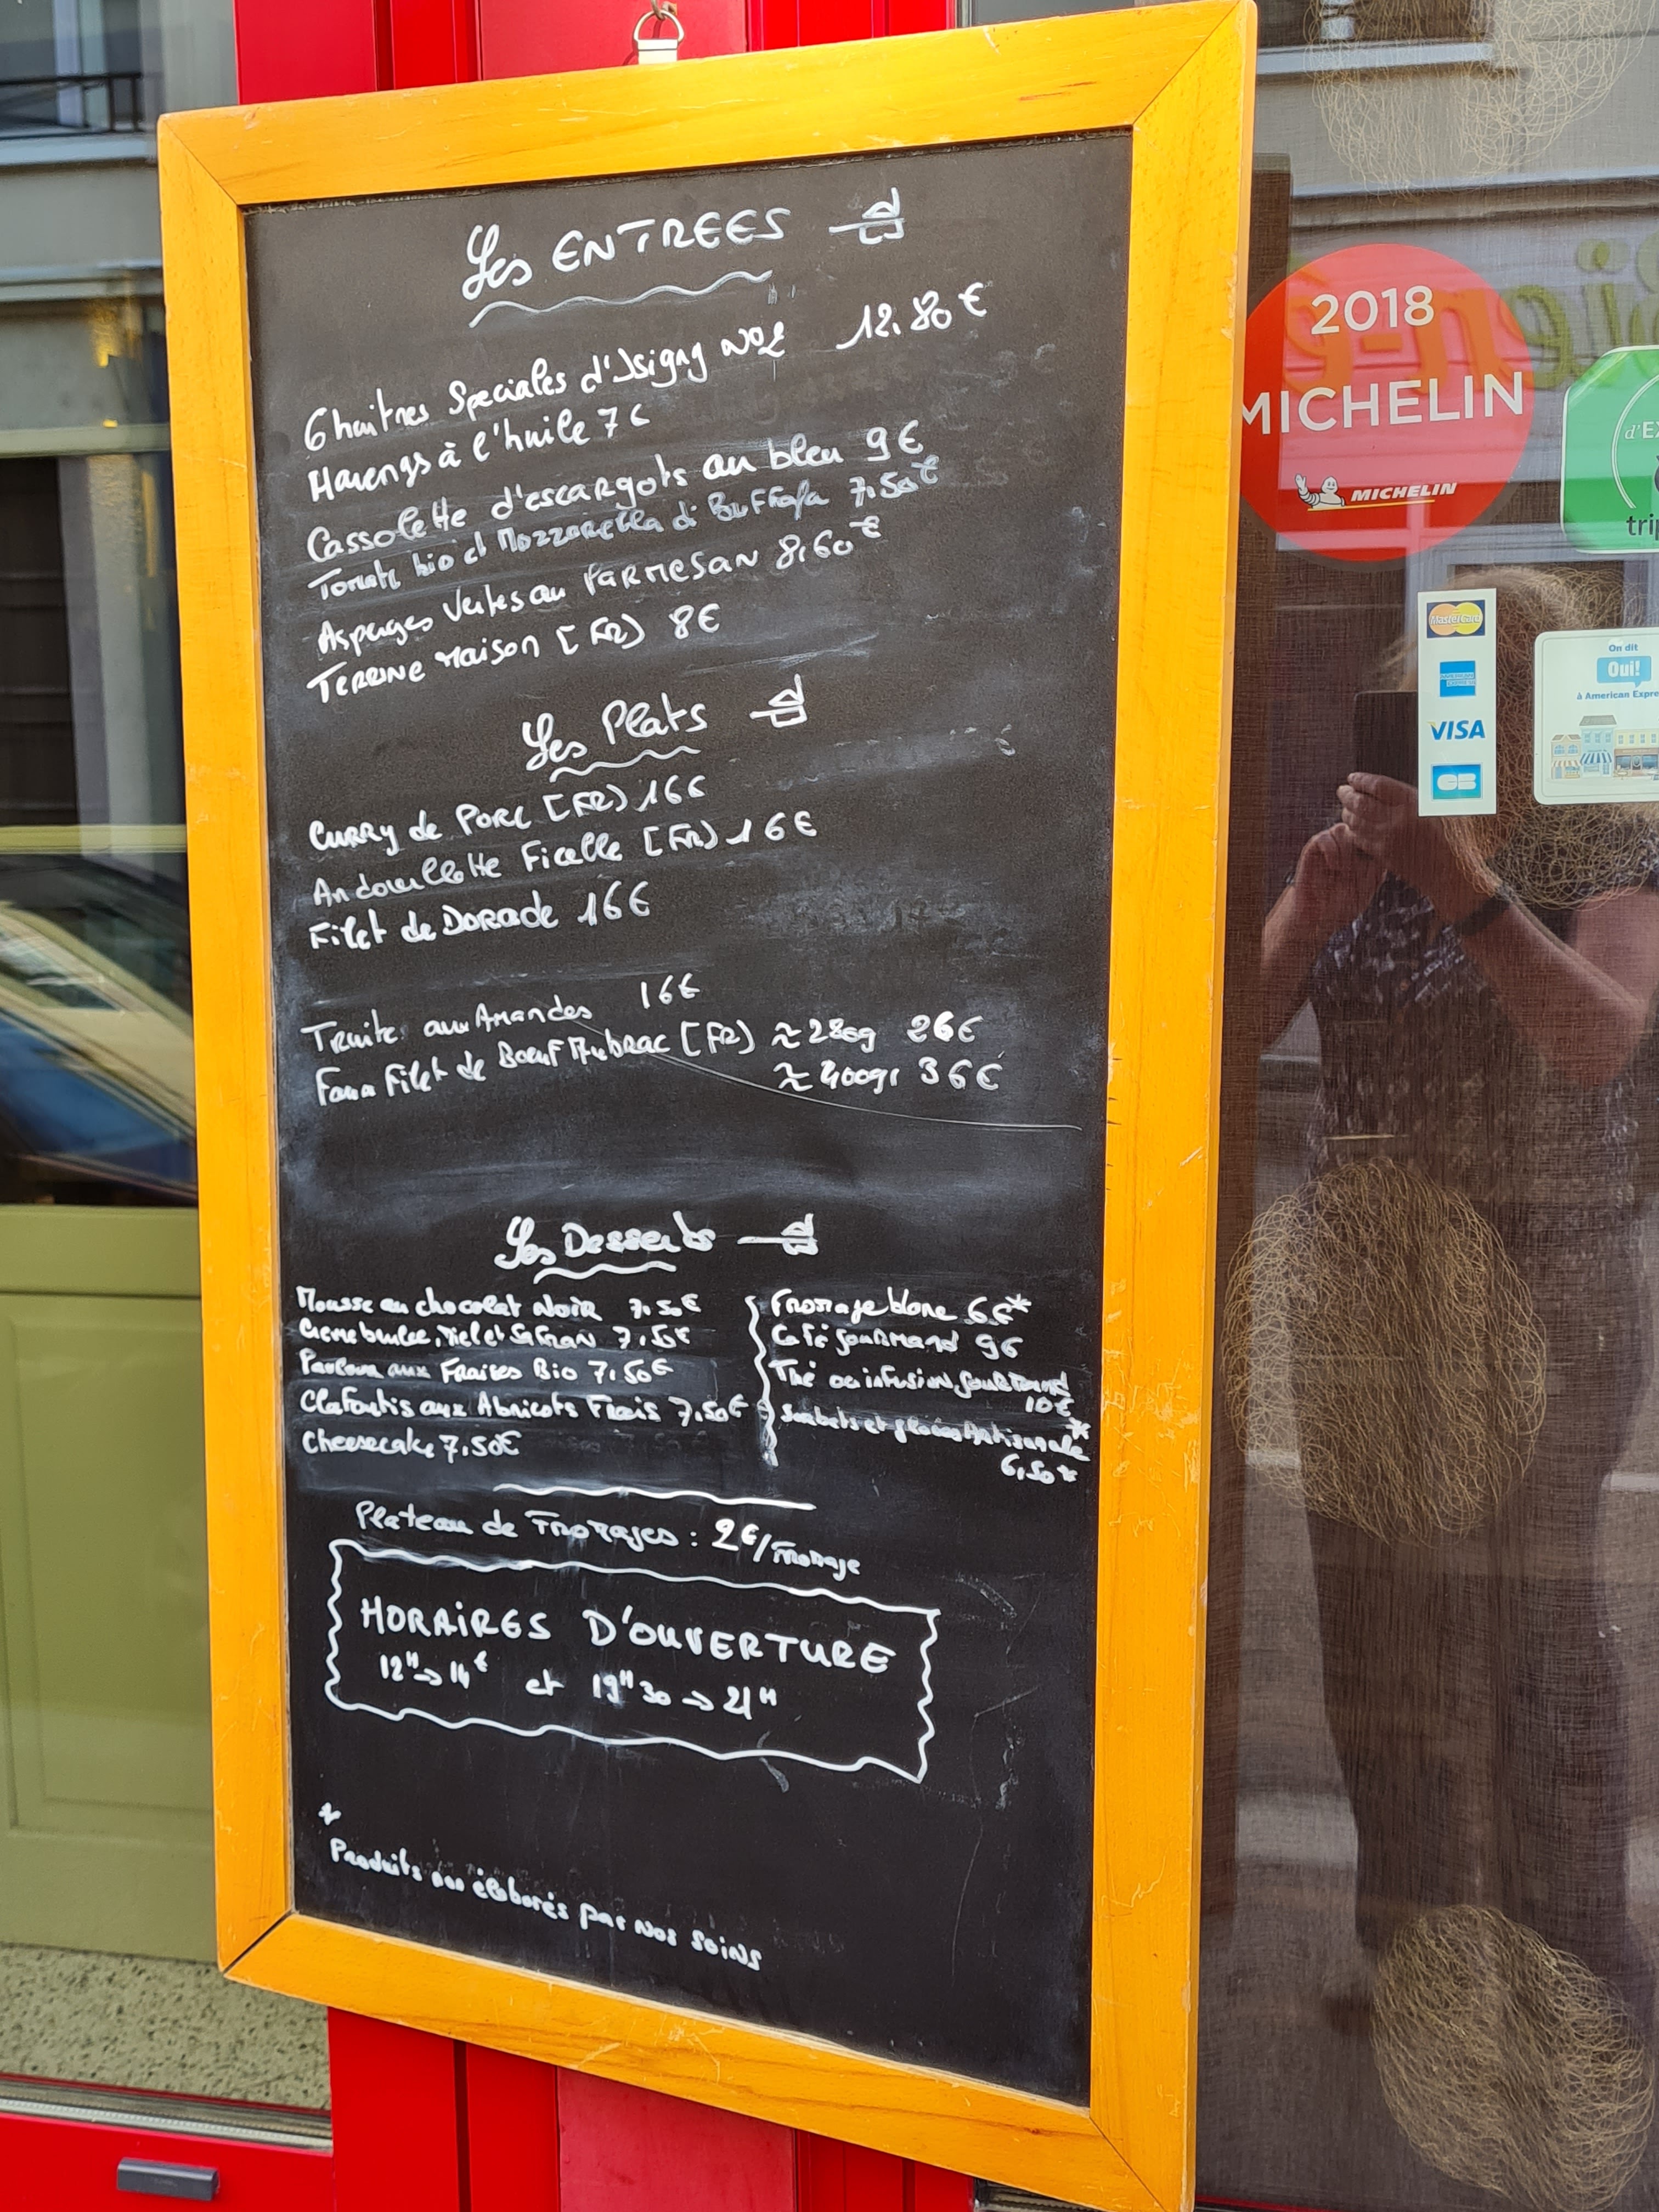 Les ENTREES
6 huitres Speciales d'Isigny N°2 12.80€
Harengs à l'huile 7€
Cassolette d'escargots au bleu 9€
Tomate bio et Mozzarella di Buffala 7.50€
Asperges Vertes au PARMESAN 8,60€
TERRINE Maison [FR) 8€
Les Plats
CURRY de PORC [FR) 16€
Andouillette Ficelle [FR) 16€
Filet de DORADE 16€
Truite aux Amandes 16€
Faux Filet de Boeuf Aubrac [FR) ≈280g 26€
≈400gr 36€
Les Desserts
Mousse au chocolat NOIR 7.50€
Creme brulee, Miel et Safran 7,50€
aux Fraises Bio 7,50€
Clafoutis aux Abricots Frais 7,50€
Cheesecake 7,50€
Fromage blanc 6€*
Café gourmand 9€
Thé ou infusion gourmand
10€
Sorbets et glaces Artisanale*
6,50€
Plateau de Fromages : 2€/Fromage
HORAIRES D'OUVERTURE
12H→14H et 19H30→21H
*
Produits élaborés par Nos soins
2018
MICHELIN
MICHELIN
d'EX
trip
MasterCard
VISA
CB
On dit
Oui!
à American Expre